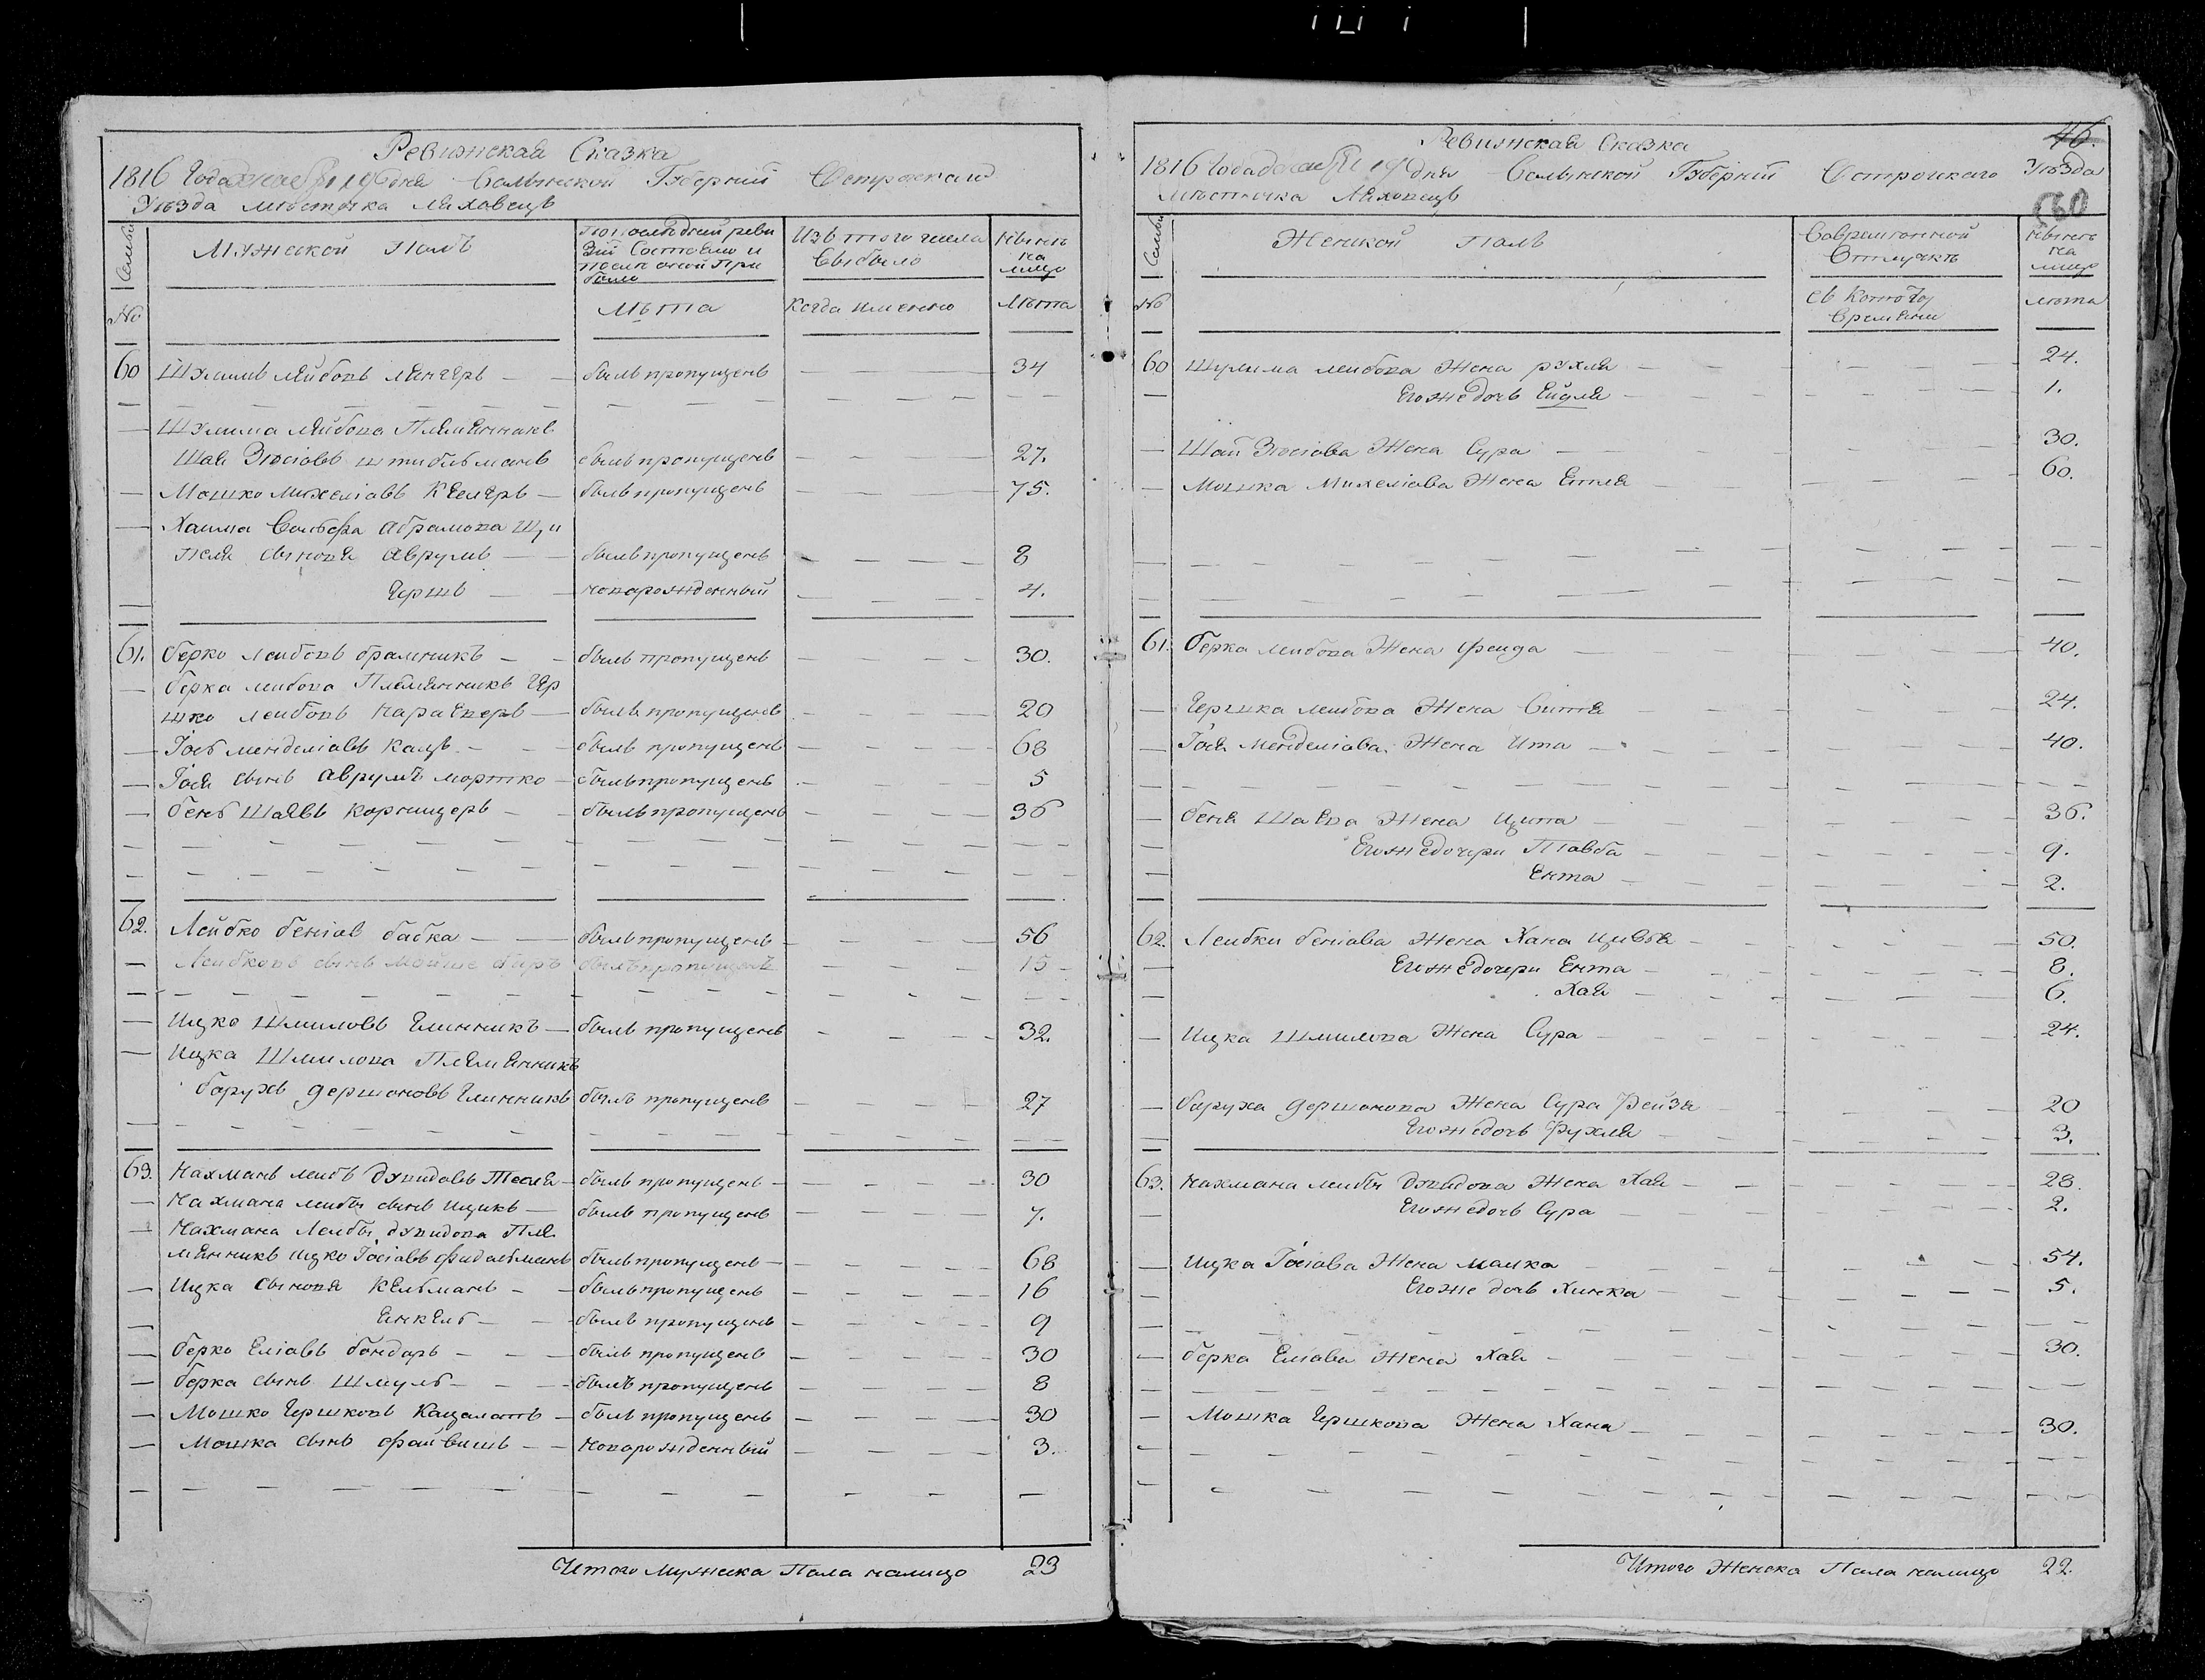 Ревизская Сказка
1816 Года дня Волынской Губернїи Острожскаго
Уезда местечка Ляховець
Семьи
Мужеской Полъ
По последней реви
зїи Состояло и
после оной При
было
Изъ того числа
выбыло
Ныне
на
лицо
№
Лета
Когда именно
Лета
60 Шулимъ Лейбовъ Лингеръ былъ пропущенъ 34
Шулима Лейбова Племянникъ
Шая Зюсїовъ штибельманъ былъ пропущенъ 27.
Мошко Михелїовъ Келеръ былъ пропущенъ 75.
Хаима Вольфа Абрамова Щи
пеля сыновя Аврумъ былъ пропущенъ 8
Гершъ новорожденный 4.
61. Берко Лейбовъ бралникъ былъ пропущенъ 30.
Берка лейбова Племянникъ Гер
шко Лейбовъ Караеверъ былъ пропущенъ 20
Їось менделїовъ Кацъ былъ пропущенъ 68
Їося сынъ Аврумъ мортко былъ пропущенъ 5
Бень Шаявъ Корчицеръ былъ пропущенъ 36
62. Лейбко бенїов бабка былъ пропущенъ 56
Лейбковъ сынъ Мойше былъ пропущенъ 15
Ицко Шмиловъ Глинникъ былъ пропущенъ 32.
Ицка Шмилова Племянникъ
борухъ гершоновъ Глинникъ былъ пропущенъ 27
63. Нахманъ лейбъ дувидовъ Тесля былъ пропущенъ 30
Нахмана лейбы сынъ ицикъ былъ пропущенъ 7.
Нахмана Лейбы дувидова Пле
мянникъ ицко Їосїовъ фидельманъ былъ пропущенъ 68
Ицка сыновя Кельманъ былъ пропущенъ 16
Енкель былъ пропущенъ 9
Берко Елїовъ бондаръ былъ пропущенъ 30
Берка сынъ Шмуль былъ пропущенъ 8
Мошко Гершковъ Кацалапъ былъ пропущенъ 30
Мошка сынъ файвишъ новорожденный 3.
Итого Мужска Пола налицо 23
46.
Ревизская Сказка
1816 Года дня Волынской Губернїи Острожскаго Уезда
Местечка Ляховець
60
Семьи
Женской полъ
Во временной
Отлучке
Ныне
на
лицо
№
съ Которого
времяни
лета
60 Шулима лейбова Жена рухля 24.
Его же дочь Ейдля 1.
Шаи Зюсїова Жена Сура 30.
Мошка Михелїова Жена Етля 60.
61. Берка лейбова Жена фейга 40.
Гершка лейбова Жена Ситя 24.
Їося Менделїова Жена Ита 40.
беня Шаева Жена Ципа 36.
Его же дочери Тавба 9.
Ента 2.
62. Лейбки бенїова Жена Хана цивья 50.
Его же дочери Ента 8.
Хая 6.
Ицка Шмилова Жена Сура 24.
боруха гершонова Жена Сура Рейзя 20
Его же дочь фрухля 3.
63. Нахмана лейбы дувидова Жена Хая 28.
Его же дочь Сура 2.
Ицка Їосїова Жена малка 54.
Его же дочь Хинка 5.
Берка Елїова Жена Хая 30.
Мошка Гершкова Жена Хана 30.
Итого Женска Пола налицо 22.